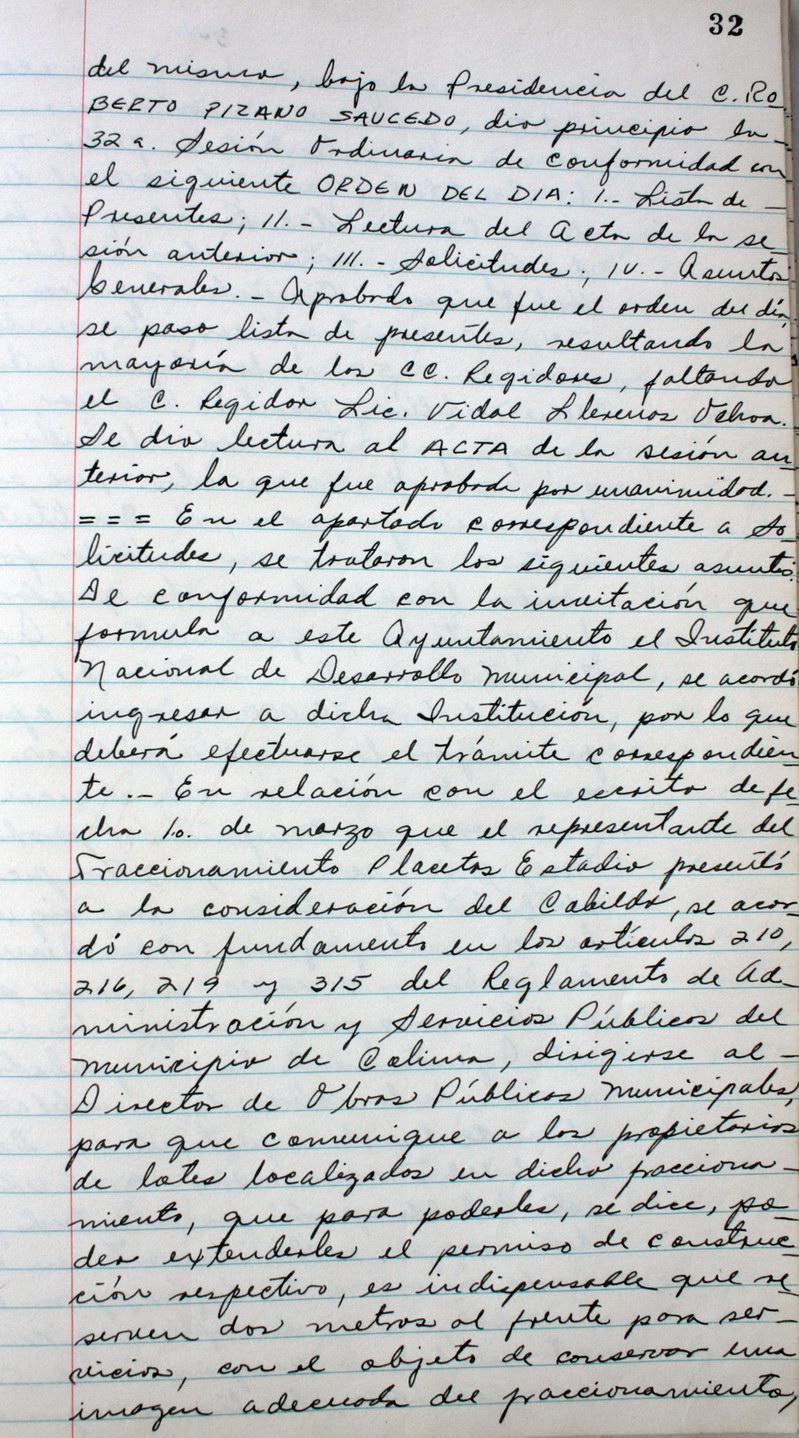 32
del mismo, bajo la Presidencia del C. RO
BERTO PIZANO SAUCEDO, dio principio la-
32a. Sesión Ordinaria de conformidad con
el siguiente ORDEN DEL DIA: I.- Lista de -
Presentes; II.- Lectura del Acta de la se
sión anterior; III.- Solicitudes; IV.- Asuntos
Generales.- Aprobado que fue el orden del día,
se paso lista de presentes, resultando la
mayoría de los CC. Regidores, faltando
el C. Regidor Lic. Vidal Llerenas Ochoa.
Se dio lectura al ACTA de la sesión an
terior, la que fue aprobada por unanimidad.-
=== En el apartado correspondiente a So
licitudes, se trataron los siguientes asuntos.
De conformidad con la invitación que
formula a este Ayuntamiento el Instituto
Nacional de Desarrollo Municipal, se acordó
ingresar a dicha Institución, por lo que
deberá efectuarse el trámite correspondien
te.- En relación con el escrito de fe
cha 1o. de marzo que el representante del
Fraccionamiento Placetas Estadio presentó
a la consideración del Cabildo, se acor-
dó con fundamento en los artículos 210,
216, 219 y 315 del Reglamento de Ad-
ministración y Servicios Públicos del
Municipio de Colima, dirigirse al -
Director de Obras Públicas Municipales,
para que comunique a los propietarios
de lotes localizados en dicho fracciona-
miento, que para poderles, se dice, po-
der extenderles el permiso de construc-
ción respectivo, es indispensable que re
serven dos metros al frente para ser-
vicios, con el objeto de conservar una
imagen adecuada del fraccionamiento,